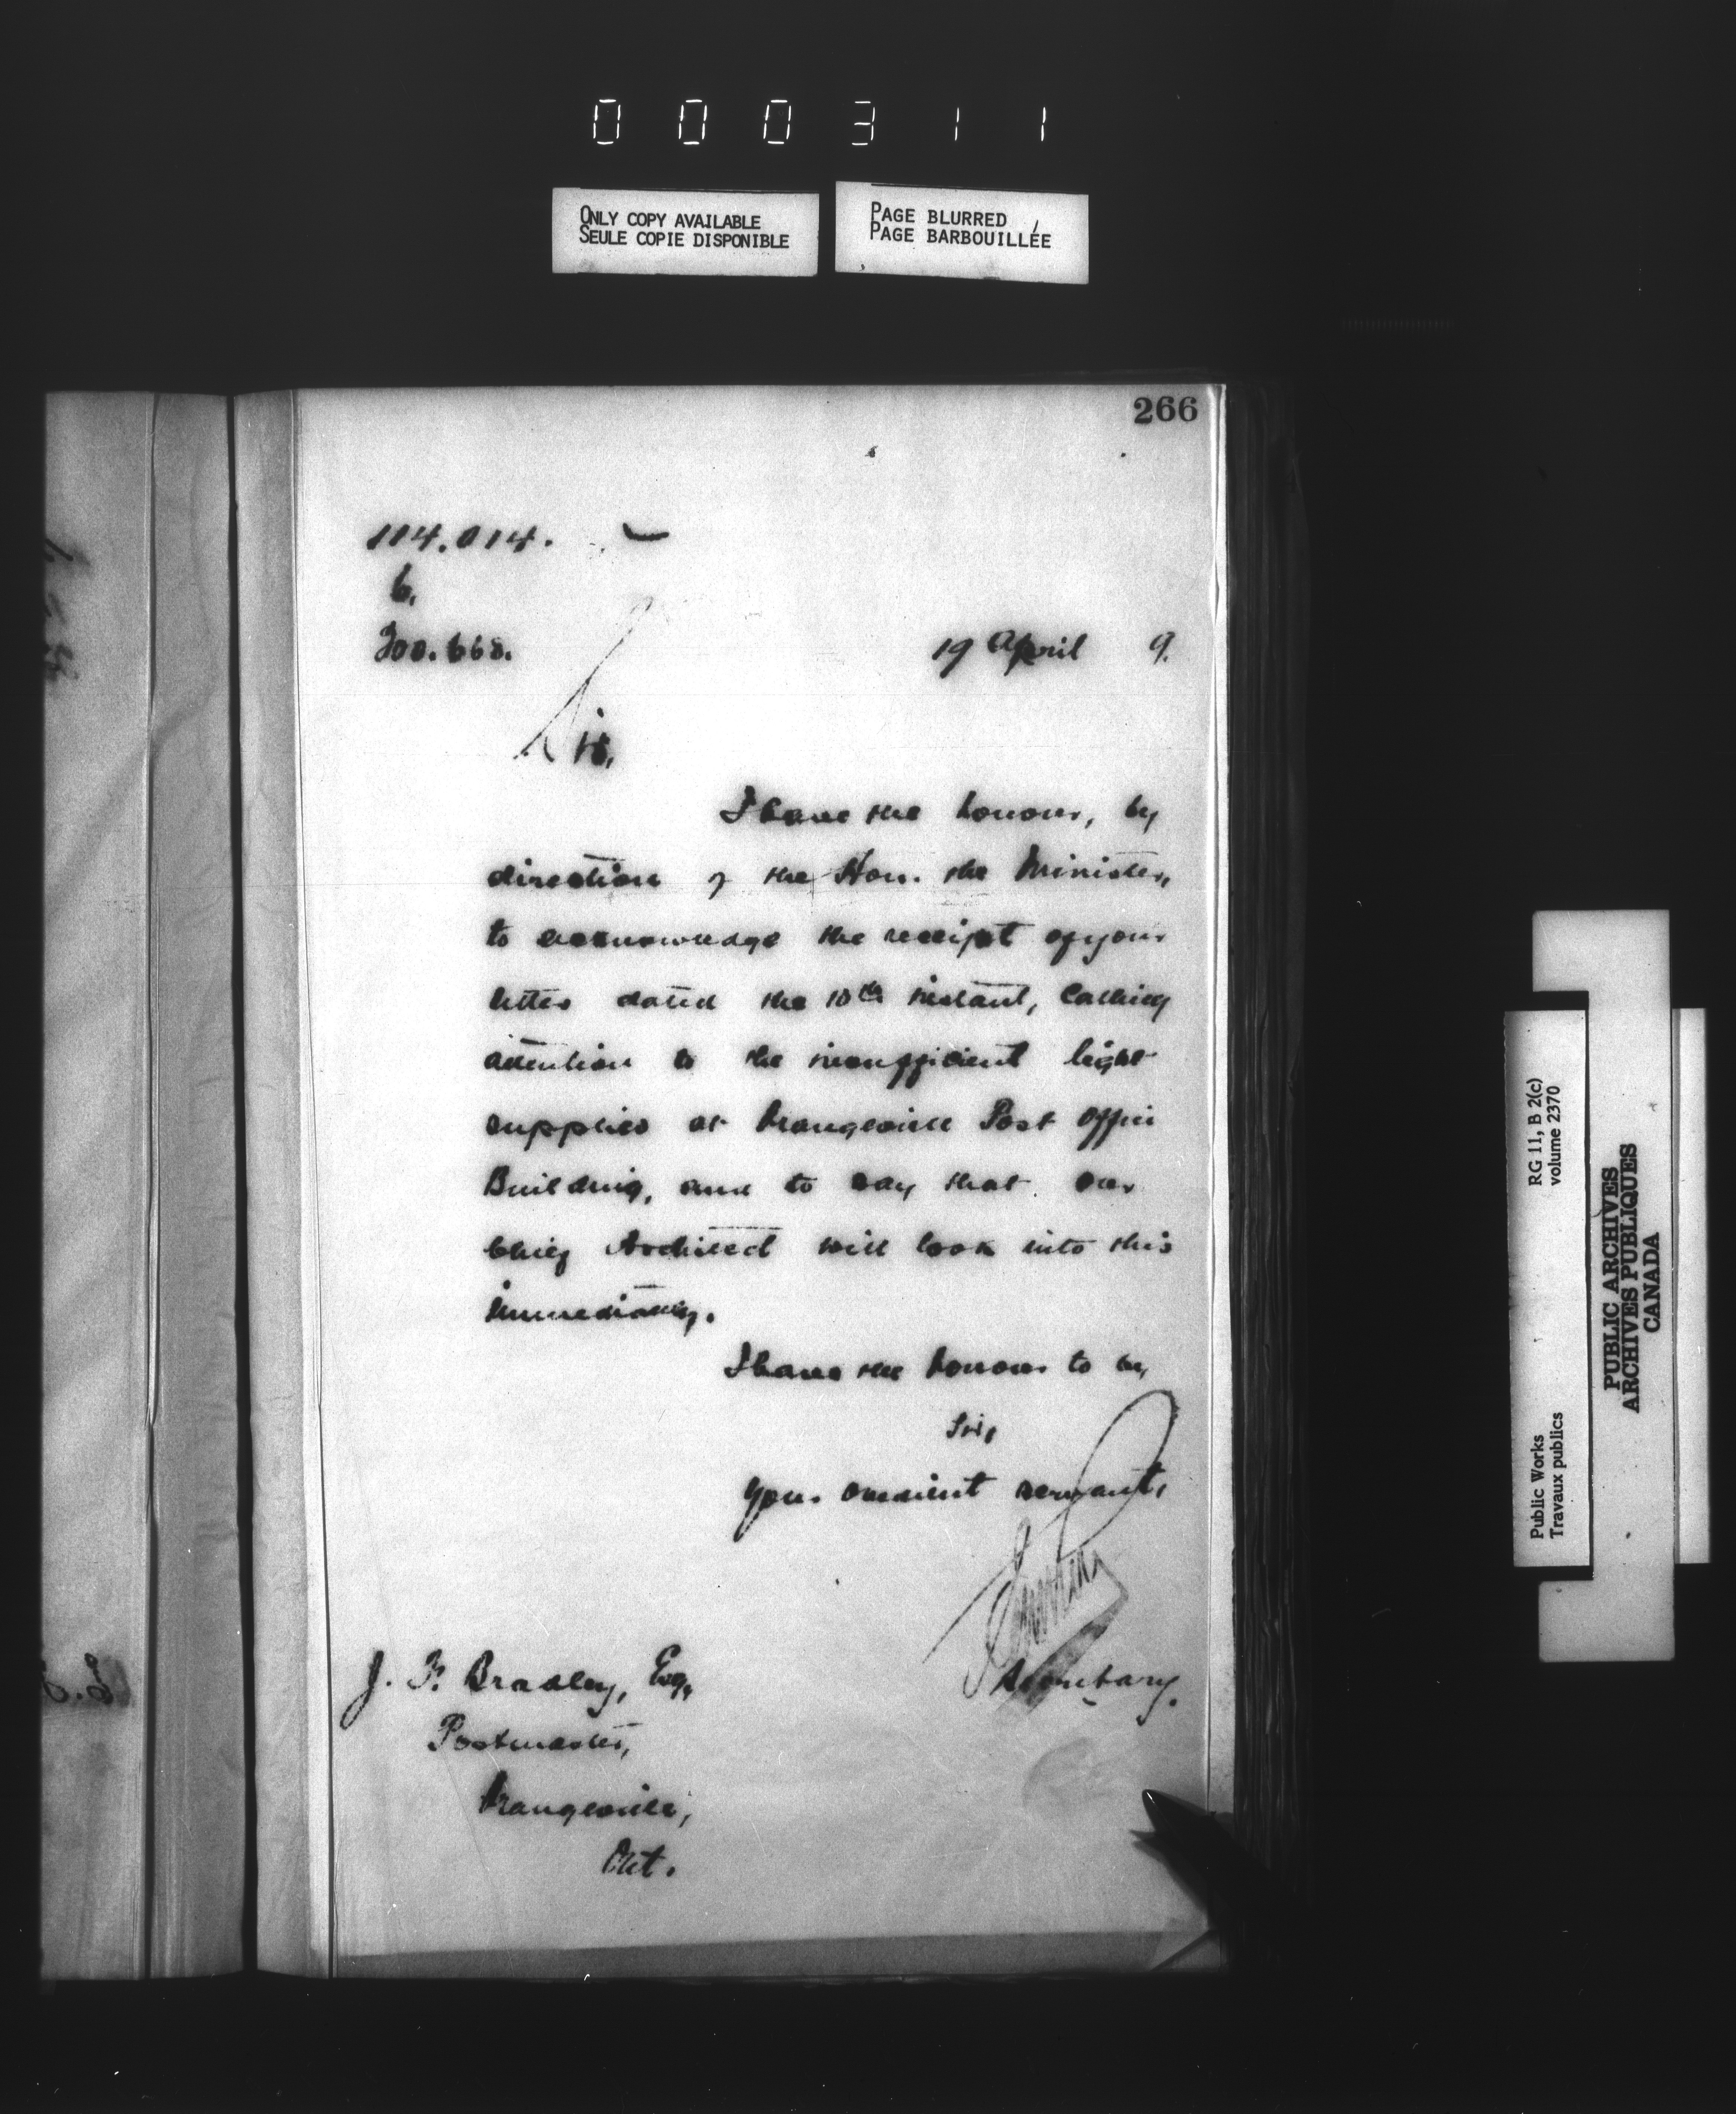 000311
ONLY COPY AVAILABLE
SEULE COPIE DISPONIBLE
PAGE BLURRED
PAGE BARBOUILLÉE
266
114.014.
6.
200.668.
19 April 9.
Sir,
I have the honour, by
direction of the Hon. the Minister,
to acknowledge the receipt of your
letter dated the 10th instant, calling
attention to the insufficient light
supplied at Orangeville Post Office
Building, and to say that our
Chief Architect will look into this
immediately.
I have the honour to be,
Sir,
Your obedient servant,
Secretary.
J. F. Bradley, Esq,
Postmaster,
Orangeville,
Ont.
RG 11, B 2(c)
volume 2370
Public Works
Travaux publics
PUBLIC ARCHIVES
ARCHIVES PUBLIQUES
CANADA